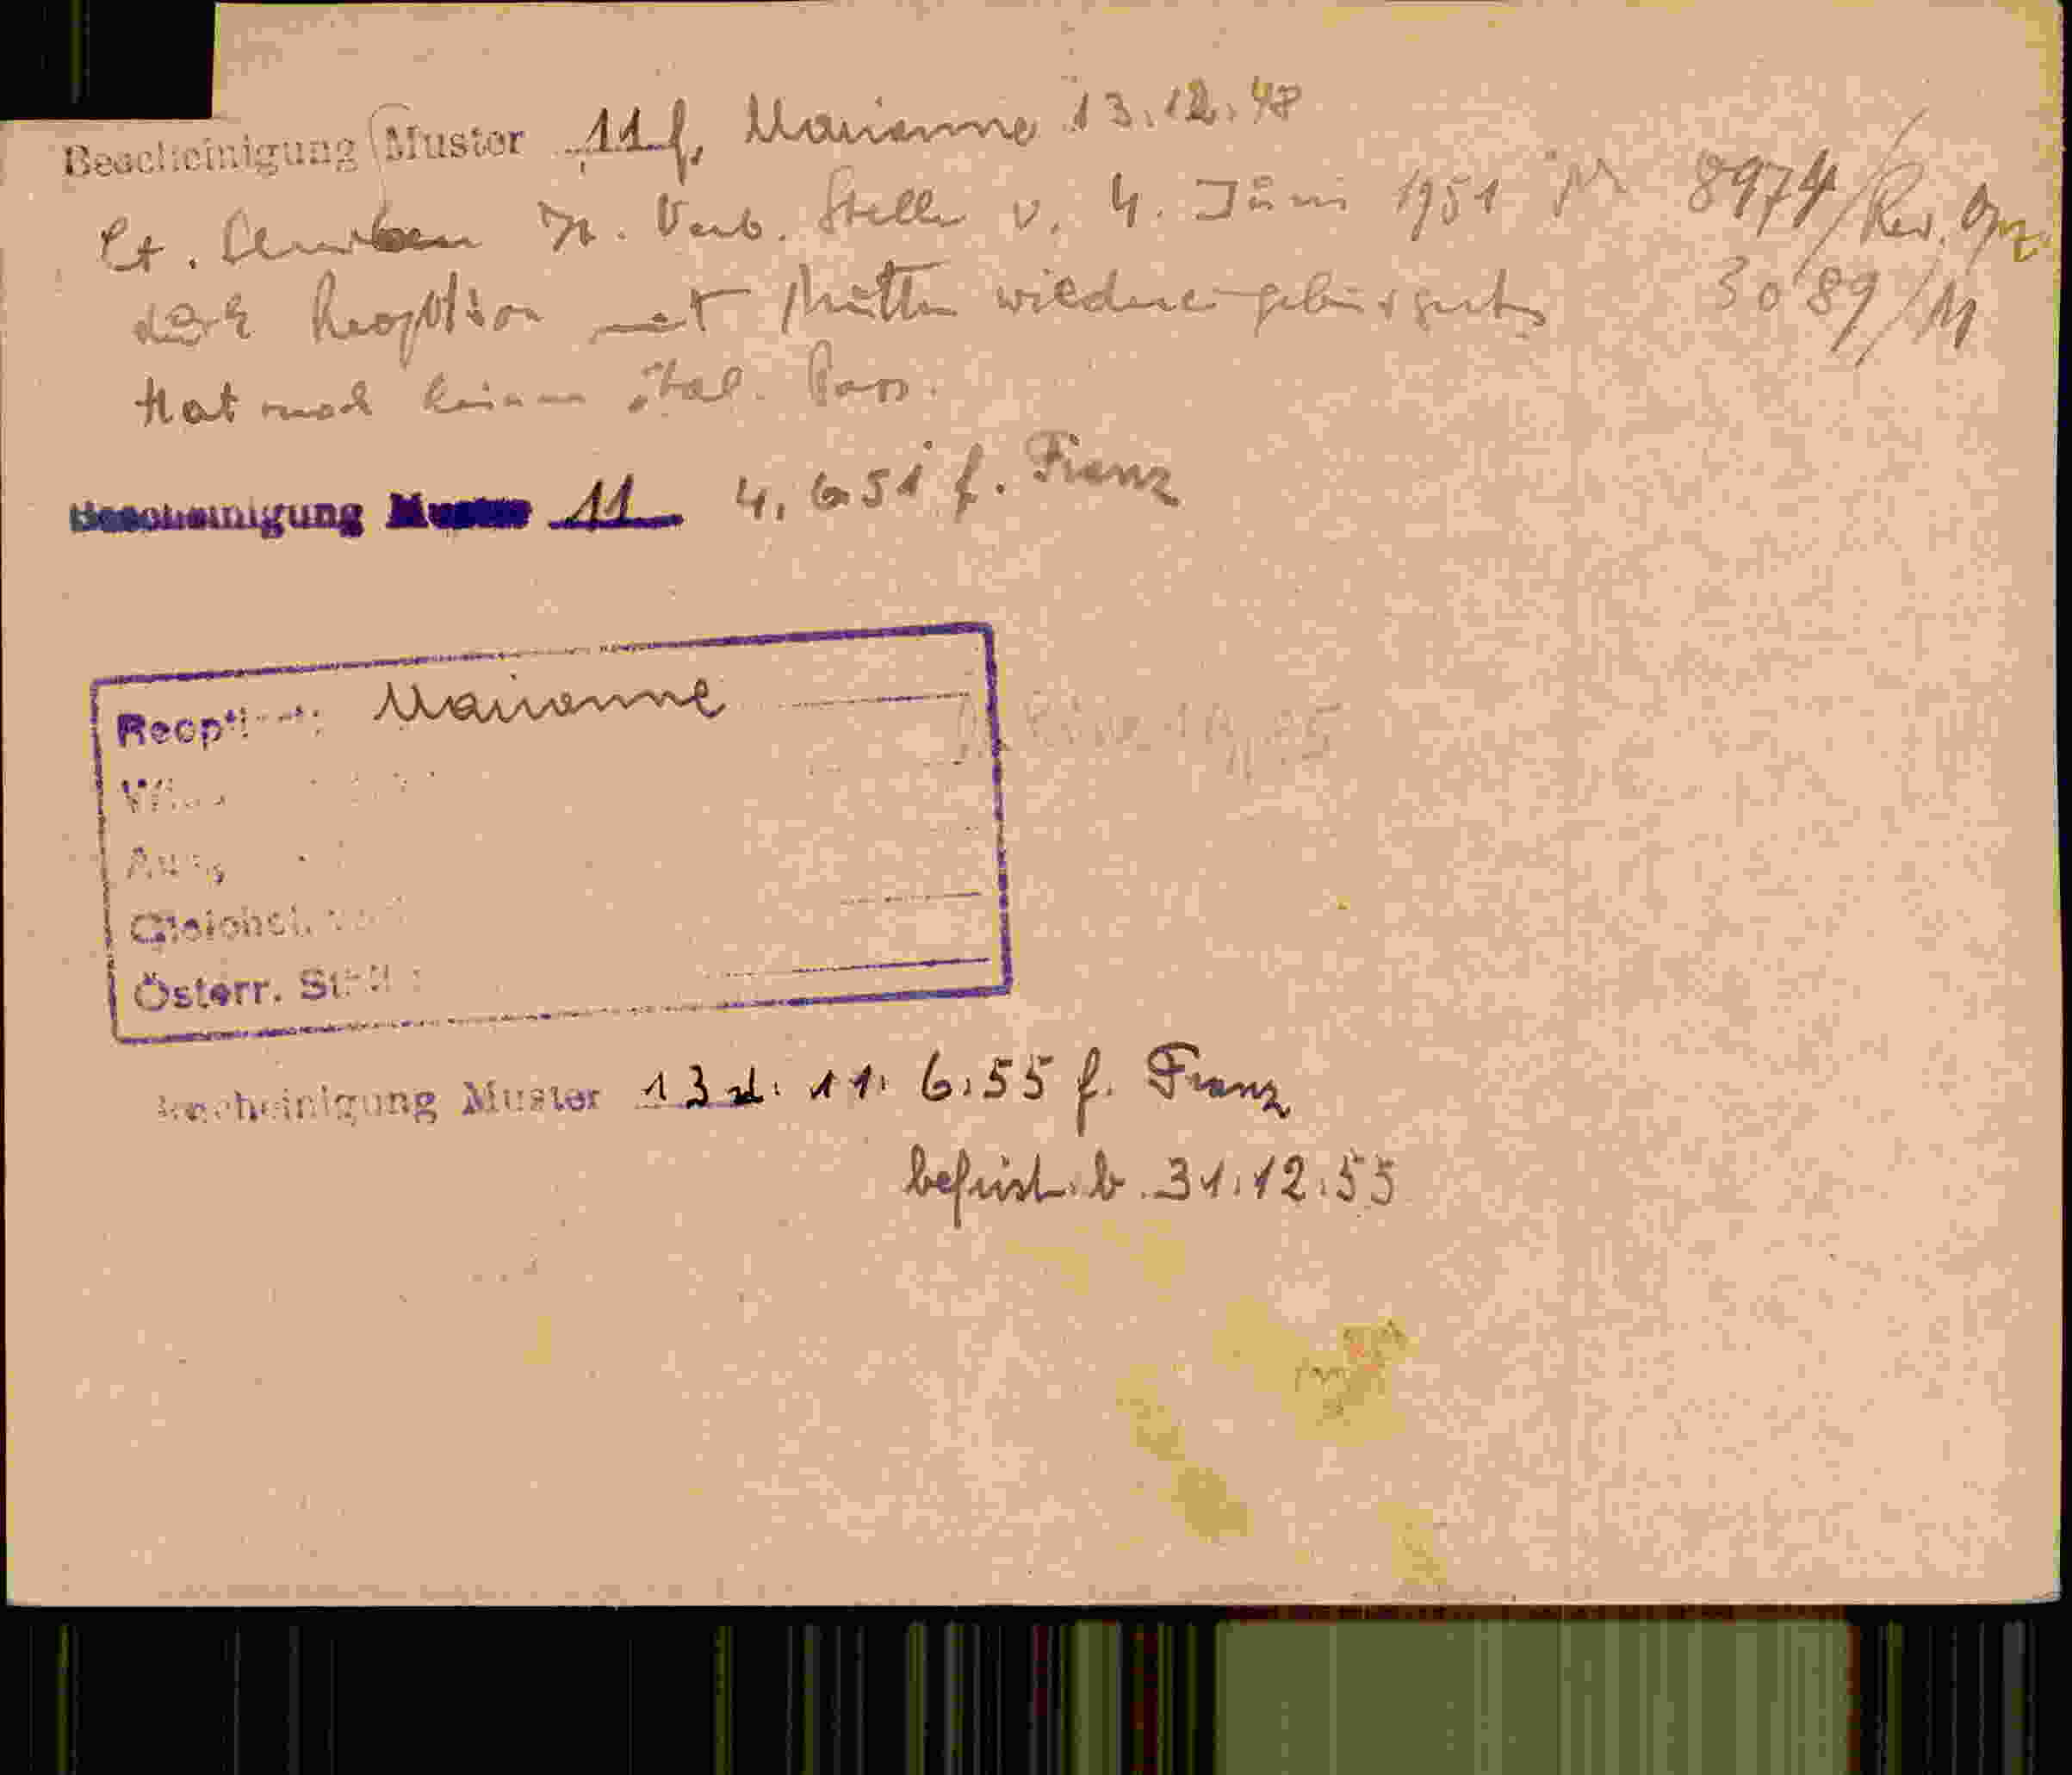 Bescheinigung Muster 11 f. Marianne 13.12.48
Lt. It. Verb. Stelle v. 4. Juni 1951 No 8974/Rev. Opz.
durch Reoption mit Mutter wiedereingebürgert 3089/M
Hat noch keinen ital. Pass.
Bescheinigung Muster 11 4.6.51 f. Franz
Reopti Marianne
Österr.
Bescheinigung Muster 13 d. 11. 6.55 f. Franz
befrist. b. 31.12.55